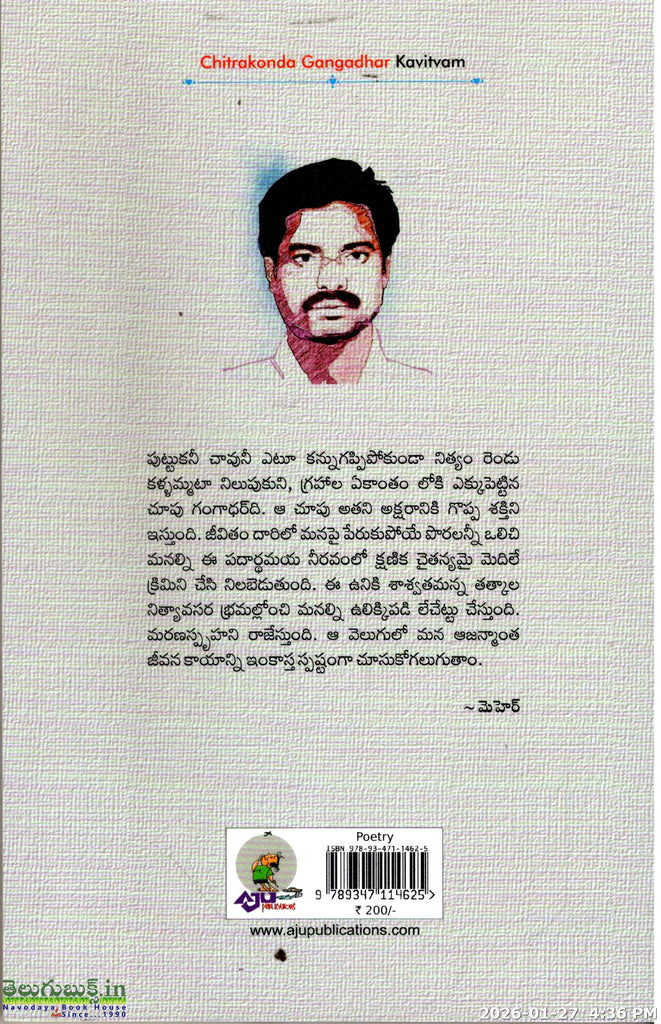 Chitrakonda Gangadhar Kavitvam
పుట్టుకనీ చావునీ ఎటూ కన్నుగప్పిపోకుండా నిత్యం రెండు
కళ్ళమ్మటా నిలుపుకుని, గ్రహాల ఏకాంతం లోకి ఎక్కుపెట్టిన
చూపు గంగాధర్‌ది. ఆ చూపు అతని అక్షరానికి గొప్ప శక్తిని
ఇస్తుంది. జీవితం దారిలో మనపై పేరుకుపోయే పొరలన్నీ ఒలిచి
మనల్ని ఈ పదార్థమయ నీరవంలో క్షణిక చైతన్యమై మెదిలే
క్రిమిని చేసి నిలబెడుతుంది. ఈ ఉనికి శాశ్వతమన్న తత్కాల
నిత్యావసర భ్రమల్లోంచి మనల్ని ఉలిక్కిపడి లేచేట్టు చేస్తుంది.
మరణస్పృహని రాజేస్తుంది. ఆ వెలుగులో మన ఆజన్మాంత
జీవన కాయాన్ని ఇంకాస్త స్పష్టంగా చూసుకోగలుగుతాం.
~ మెహెర్
Poetry
ISBN 978-93-471-1462-5
9 789347 114625 >
₹ 200/-
AJU
PUBLICATIONS
www.ajupublications.com
తెలుగుబుక్స్.in
Navodaya Book House
Since...1990
2026-01-27 4:36 PM